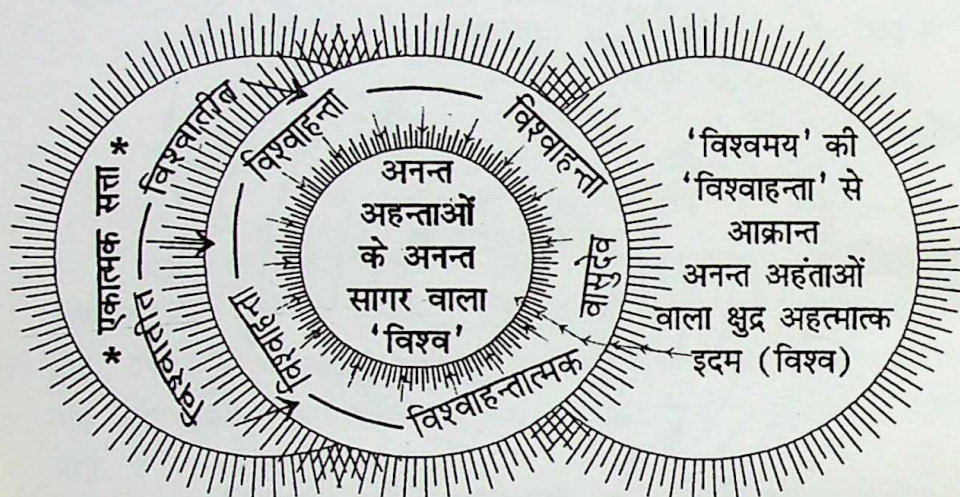 * एकात्मक सत्ता *
विश्वातीत
विश्वातीत
विश्वाहन्ता
विश्वाहन्ता
विश्वाहन्ता
वासुदेव
विश्वाहन्तात्मक
अनन्त
अहन्ताओं
के अनन्त
सागर वाला
'विश्व'
'विश्वमय' की
'विश्वाहन्ता' से
आक्रान्त
अनन्त अहंताओं
वाला क्षुद्र अहत्मात्क
इदम (विश्व)